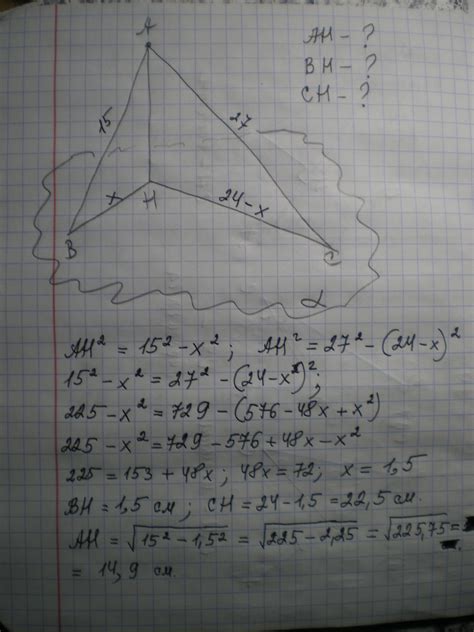 AH - ?
BH - ?
CH - ?
A
15
27
x
H
24-x
B
C
α
AH² = 15² - x² ; AH² = 27² - (24-x)²
15² - x² = 27² - (24-x)² ;
225 - x² = 729 - (576 - 48x + x²)
225 - x² = 729 - 576 + 48x - x²
225 = 153 + 48x ; 48x = 72 ; x = 1,5
BH = 1,5 см ; CH = 24 - 1,5 = 22,5 см.
AH = √15² - 1,5² = √225 - 2,25 = √225,75 =
= 14,9 см.